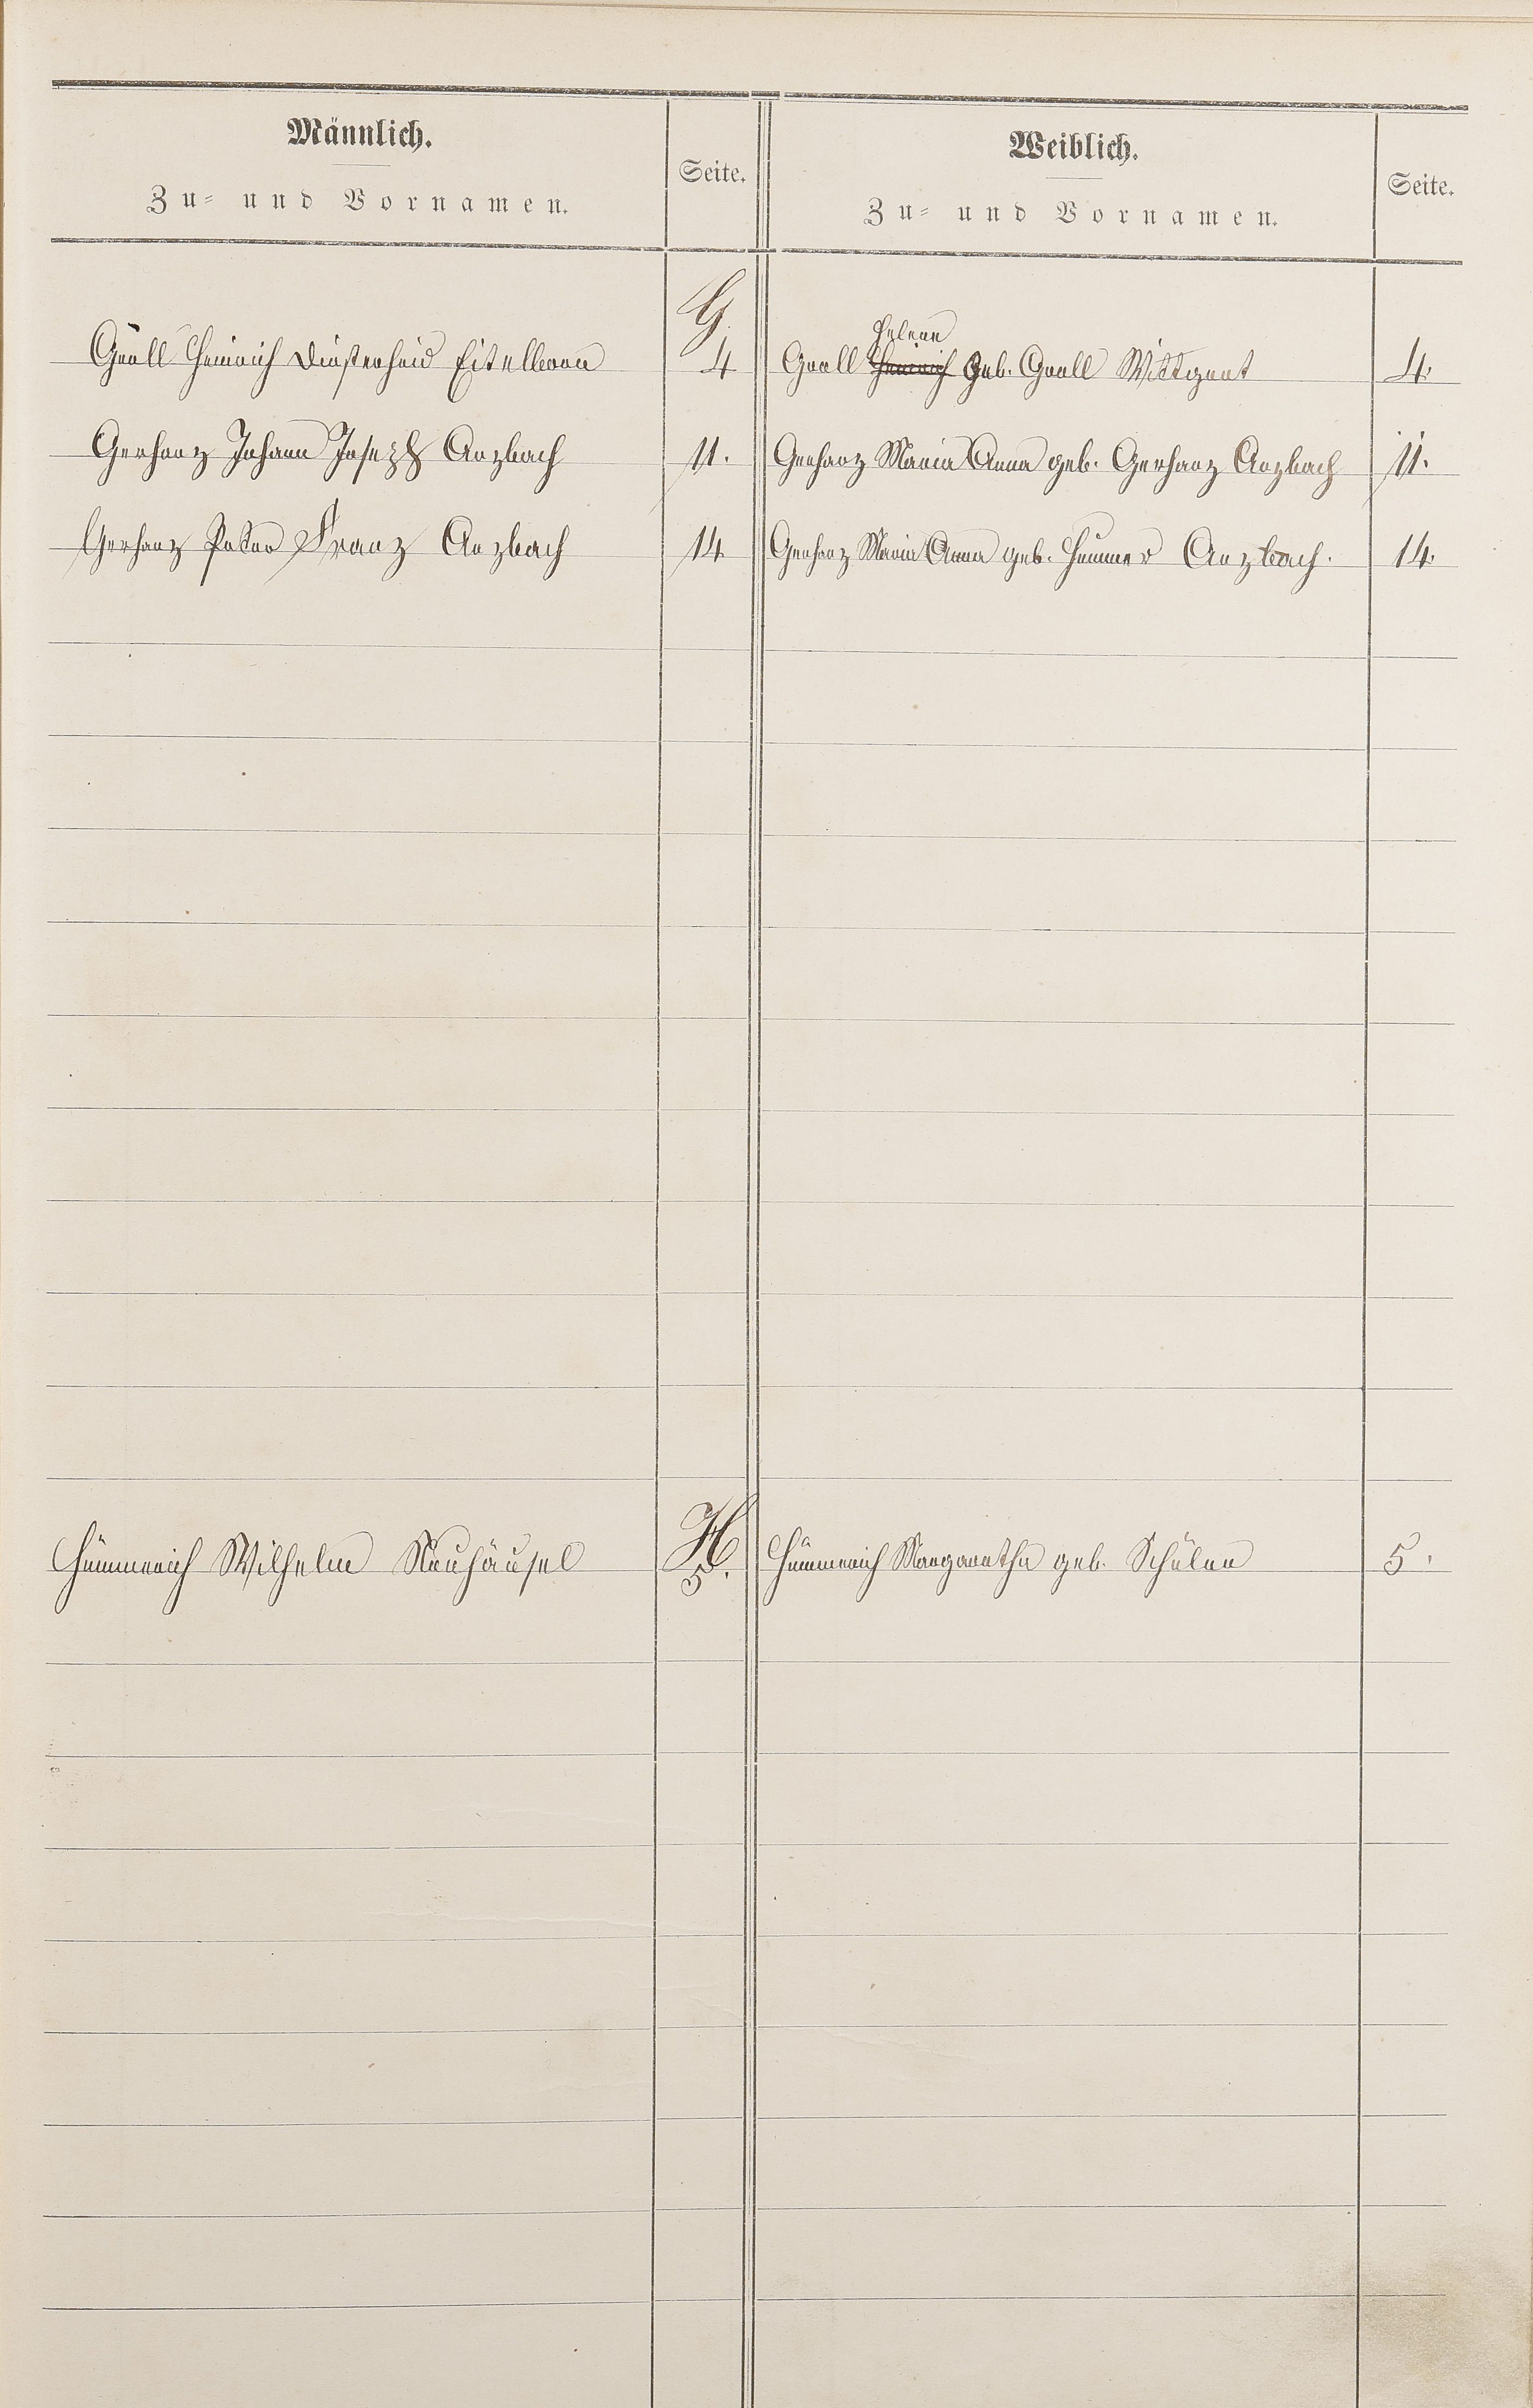 Männlich.
Zu- und Vornamen.
Seite.
Weiblich.
Zu- und Vornamen.
Seite.
G.
Helene
Groll Heinrich Eitelborn 4 Groll Heinrich geb. Groll 4.
Gerharz Johann Joseph Arzbach 11. Gerharz Maria Anna geb. Gerharz Arzbach 11.
Gerharz Peter Franz Arzbach 14 Gerharz Maria Anna geb. Hummer Arzbach. 14.
H
Hümmerich Wilhelm Neuhäusel 5. Hümmerich Margaretha geb. Schüler 5.